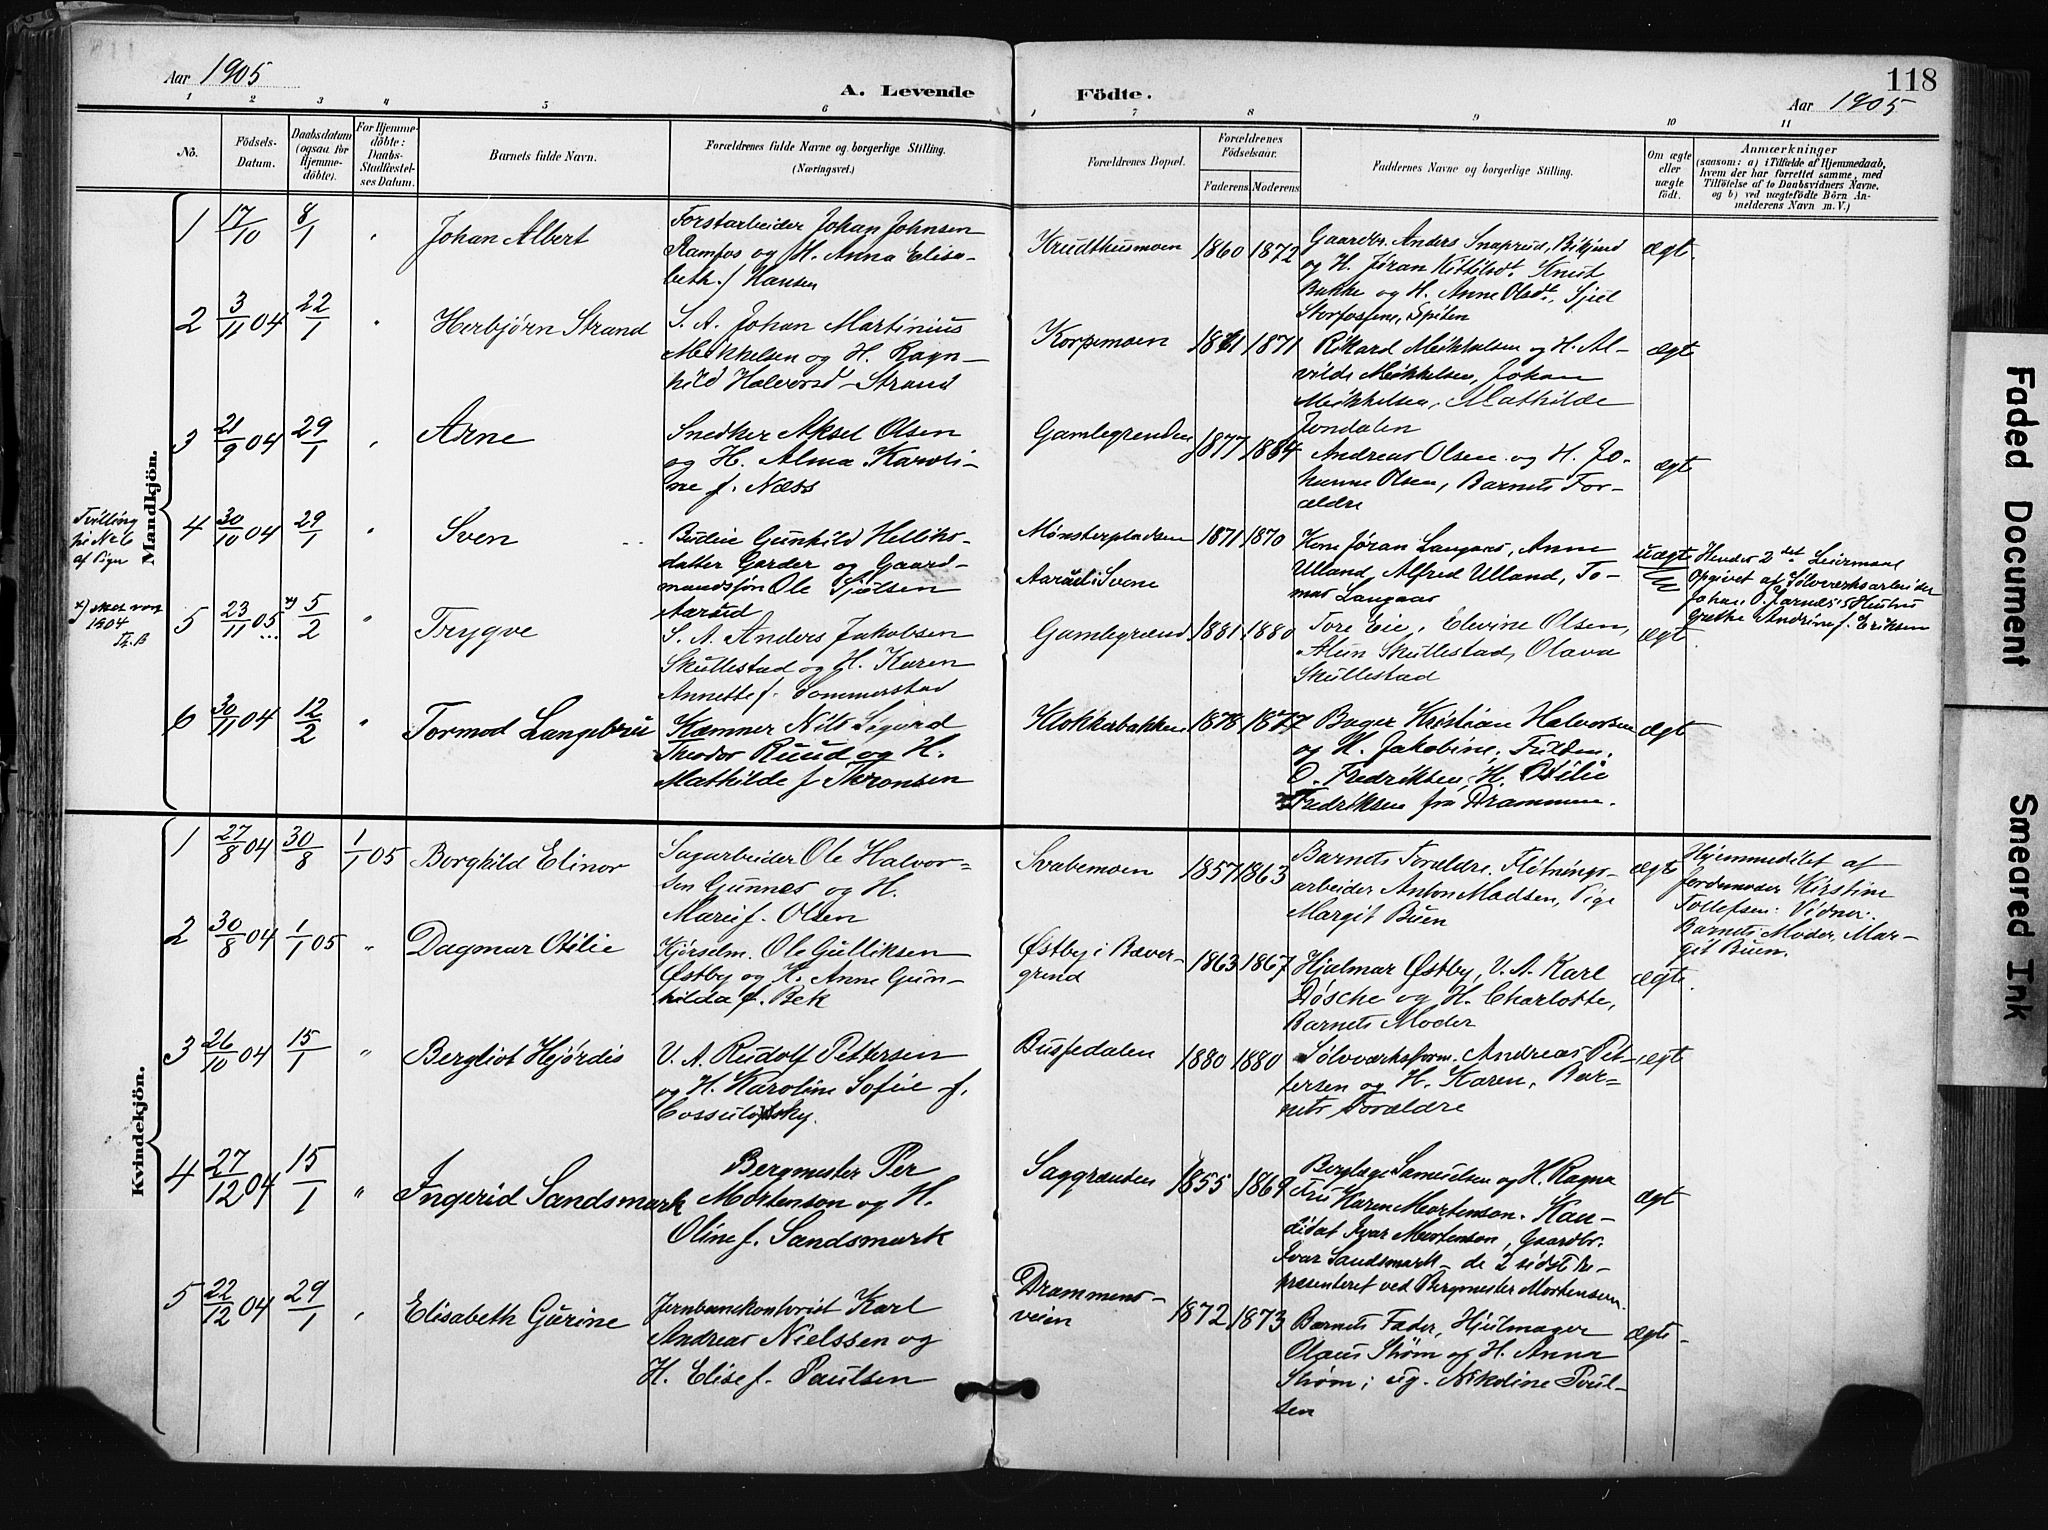 Aar 1905
A. Levende Födte.
118
Aar 1905
1 2 3 4 5 6 1 7 8 9 10 11
No.
Födsels-Datum.
Daabsdatum (ogsaa for Hjemmedöbte).
For Hjemmedöbte: Daabs-Stadfæstelses Datum.
Barnets fulde Navn.
Forældrenes fulde Navne og borgerlige Stilling.
(Næringsvei.)
Forældrenes Bopæl.
Forældrenes Födselsaar.
Faderens
Moderens
Faddernes Navne og borgerlige Stilling.
Om ægte eller uægte födt.
Anmærkninger
(saasom: a) i Tilfælde af Hjemmedaab,
hvem der har forrettet samme, med
Tilföielse af to Daabsvidners Navne.
og b) ved uægtefödte Börn An-
melderens Navn m. V.)
Mandkjön.
1 17/10 8/1 " Johan Albert
Forstarbeider Johan Johnsen
Ramfos og H. Anna Elisa-
beth f. Hansen
Krudthusmoen 1860 1872
Gaardbr. Anders Snaprud,
og H. Jøran Kittilsdt. Knut
Bakke og H. Anne Olsdt.,
Storfossene, Spiten
ægt.
2 3/11 04 22/1 " Herbjørn Strand
S. A. Johan Martinius
Mikkelsen og H. Ragn-
hild Halvorsd. Strand
Korpemoen 1871 1871
Rikard Mikkelsen og H. Al-
vilde Mikkelsen, Johan
Mikkelsen, Mathilde
Jondalen
ægt
3 21/9 04 29/1 " Arne
Snedker Aksel Olsen
og H. Alma Karoli-
ne f. Næss
Gamlegrenden 1877 1884
Andreas Olsen og H. Jo-
hanne Olsen, Barnets For-
ældre
ægt
Tvilling
til No 6
af Piger
4 30/10 04 29/1 " Sven
Budeie Gunhild Helliks-
datter Garder og Gaard-
mandssøn Ole Sjulsen
Aarud
Mønsterpladsen
Aarud i Svene
1871 1870
Kone Jøran Langaas, Anne
Ulland, Alfred Ulland, To-
mas Langaas
uægte
Hendes 2det Leiermaal
Opgivet af Sølvværksarbeider
Johan O. Jarnæs's Hustru
Grethe Andrine f. Eriksen
x) skal være
1904
5 23/11 05 x) 5/2 " Trygve
S. A. Anders Jakobsen
Skullestad og H. Karen
Annette f. Sommerstad
Gamlegrænd 1881 1880
Tore Eie, Elevine Olsen,
Skullestad, Olava
Skullestad
ægt.
6 30/11 04 12/2 " Tormod Langebru
Kæmner Nils Sigurd
Theodor Ruud og H.
Mathilde f. Thronsen
Klokkerbakken 1878 1877
Bager Kristian Halvorsen
og H. Jakobine, Fuldm.
O. Fredriksen, H. Otilie
Fredriksen fra Drammen.
ægt
Kvindekjön.
1 27/8 04 30/8 1/1 05 Borghild Elinor
Sagarbeider Ole Halvor-
sen Gunnes og H.
Marie f. Olsen
Svabemoen 1857 1863
Barnets Forældre. Fløtnings-
arbeider Anton Madsen, Pige
Margit Buen
ægte
Hjemmedøbt af
Jordmoder Kirstine
Tollefsen. Vidner:
Barnets Moder, Mar-
git Buen.
2 30/8 04 1/1 05 " Dagmar Otilie
Kjørselm. Ole Gulliksen
Østby og H. Anne Gun-
hilda f. Bek
Østby i Bæver-
grend
1863 1867
Hjalmar Østby, V. A. Karl
Døsche og H. Charlotte,
Barnets Moder
ægte.
3 26/10 04 15/1 " Bergliot Hjørdis
V. A. Rudolf Pettersen
og H. Karoline Sofie f.
Bussedalen 1880 1880
Sølvværksform. Andreas Pet-
tersen og H. Karen, Bar-
nets Forældre
ægt
4 27/12 04 15/1 " Ingerid Sandsmark
Bergmester Per
Mortenson og H.
Oline f. Sandsmark
Saggrænden 1855 1869
Berglæge Samuelsen og H. Ragna
Fru Karen Mortenson. Kan-
didat Ivar Mortenson, Gaardbr.
Ivar Sandsmark - de 2 sidst re-
præsenteret ved Bergmester Mortenson.
ægt
5 22/12 04 29/1 " Elisabeth Gurine
Jernbanekontorist Karl
Andreas Nielssen og
H. Elise f. Paulsen
Drammens-
veien
1872 1873
Barnets Fader, Hjulmager
Olaus Strøm og H. Anna
Strøm; ug. Nikoline Poul-
sen
ægte
Faded Document
Smeared Ink